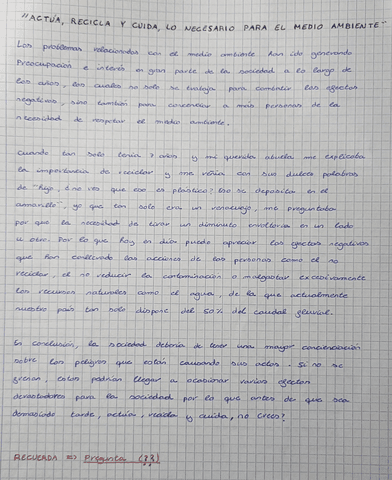 "ACTÚA, RECICLA Y CUIDA, LO NECESARIO PARA EL MEDIO AMBIENTE"
Los problemas relacionados con el medio ambiente han ido generando
preocupación e interés en gran parte de la sociedad a lo largo de
los años, los cuales no solo se trabaja para combatir los efectos
negativos, sino también para concenciar a más personas de la
necesidad de respetar el medio ambiente.
Cuando tan solo tenía 7 años y mi querida abuela me explicaba
la importancia de reciclar y me reñía con sus dulces palabras
de "hijo, ¿no ves que eso es plástico? Eso se deposita en el
amarillo", yo que tan solo era un renacuajo, me preguntaba
por que la necesidad de tirar un diminuto envoltorio en un lado
u otro. Por lo que hoy en día puedo apreciar los efectos negativos
que han conllevado las acciones de las personas como el no
reciclar, el no reducir la contaminación o malgastar excesivamente
los recursos naturales como el agua, de la que actualmente
nuestro país tan solo dispone del 50% del caudal fluvial.
En conclusión, la sociedad debería de tener una mayor concienciación
sobre los peligros que están causando sus actos. Si no se
frenan, estos podrían llegar a ocasionar varios efectos
devastadores para la sociedad por lo que antes de que sea
demasiado tarde, actúa, recicla y cuida, no crees?
RECUERDA => Pregunta (??)